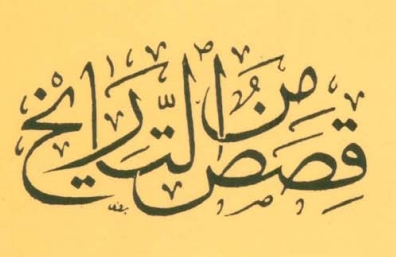 قِصَصٌ مِنَ التَّارِيخِ